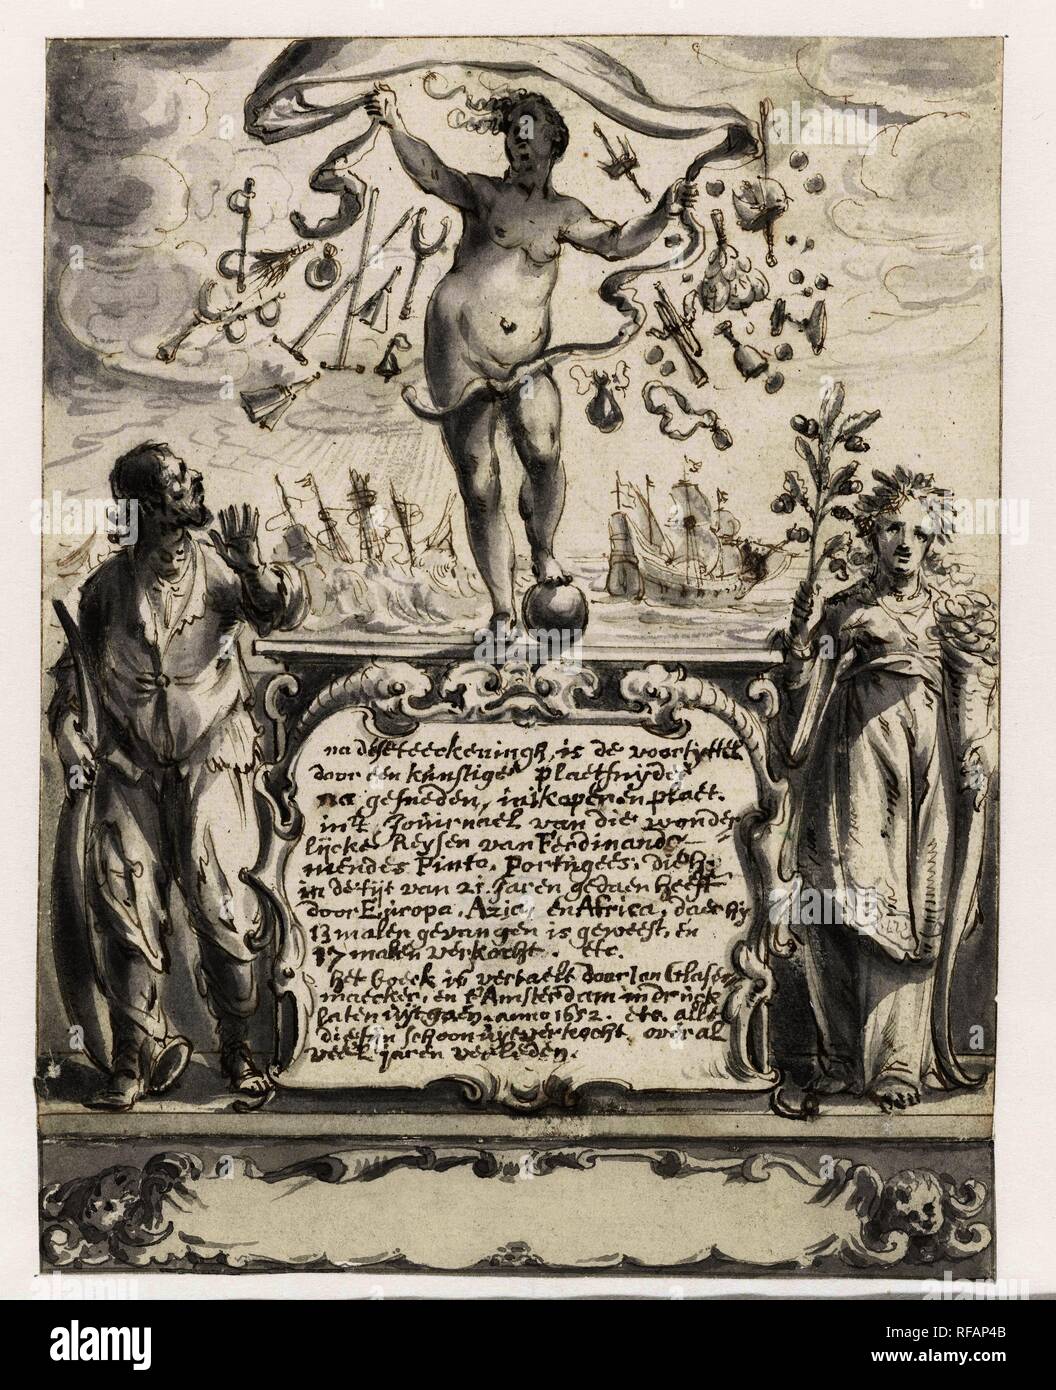 na dese teeckeningh, is de voortyttel
door een kunstige plaetsnyder
na gesneden, in kooperen plaet.
in't Jouirnael van die wonder
lijcke Reysen van Ferdinando
mendes Pinto, Portugees, die hy
in de tijt van 21. Jaren gedaen heeft
door Europa, Azia, en Africa, daer hy
13 malen gevangen is geweest, en
17 malen verkocht. etc.
het boeck is vertaelt door Jan Glase
maecker, en t'Amsterdam in druck
laten uijt gaen, anno 1652. etc. alle
dese in schoon uijt verkocht over al
veel jaren verleden.
alamy
alamy stock photo
RFAP4B
www.alamy.com